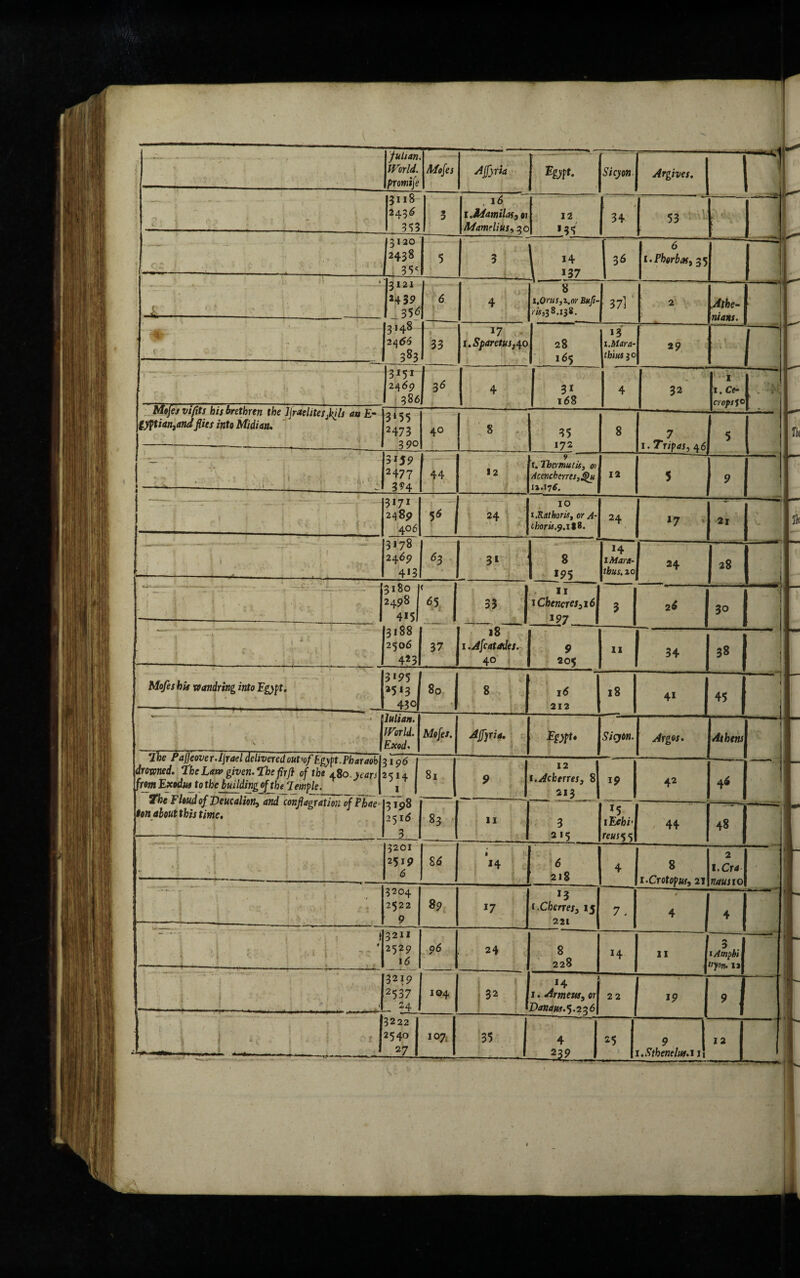 Julian. World. promise | Moses | Assyria | Egypt. | Sicyon | Argives.
3118 2436 353 | 3 | 16 1.Mamilas, or Mamelius, 30 | 12 135 | 34 | 53
3120 2438 35 | 5 | 3 | 14 137 | 36 | 6 1.Phorbas, 35
3121 2439 356 | 6 | 4 | 8 1.Orus,2.or Busiris,38.138. | 37 | 2 | Athenians.
3148 2466 383 | 33 | 17 1.Sparctus,40 | 28 165 | 13 1.Marathius 30 | 29
3151 2469 386 | 36 | 4 | 31 168 | 4 | 32 | 1 1. Cecrops 50
Moses visits his brethren the Israelites,kils an Egyptian,and flies into Midian. | 3155 2473 390 | 40 | 8 | 35 172 | 8 | 7 1. Tripas, 46 | 5
3159 2477 394 | 44 | 12 | 9 1. Thermutis, or Acencherres, 12.176. | 12 | 5 | 9
3171 2489 406 | 56 | 24 | 10 1.Rathoris, or Athoris.9.188. | 24 | 17 | 21
3178 2469 413 | 63 | 31 | 8 195 | 14 1Marathus.20 | 24 | 28
3180 2498 415 | 65 | 33 | 11 1Chencres,16 197 | 3 | 26 | 30
3188 2506 423 | 37 | 18 1.Ascatades. 40 | 9 205 | 11 | 34 | 38
Moses his wandring into Egypt. | 3195 2513 430 | 80 | 8 | 16 212 | 18 | 41 | 45
Iulian. World. Exod. | Moses. | Assyria. | Egypt. | Sicyon. | Argos. | Athens
The Passeover.Israel delivered out of Egypt.Pharaoh drowned. The Law given. The first of the 480. years from Exodus to the building of the Temple. | 3196 2514 1 | 81 | 9 | 12 1.Acherres, 8 213 | 19 | 42 | 46
The Floud of Deucalion, and conflagration of Phaeton about this time. | 3198 2516 3 | 83 | 11 | 3 215 | 15 1Echireus 55 | 44 | 48
3201 2519 6 | 86 | 14 | 6 218 | 4 | 8 1.Crotopus, 21 | 2 1.Cranaus 10
3204 2522 9 | 89 | 17 | 13 1.Cherres, 15 221 | 7. | 4 | 4
3211 2529 16 | 96 | 24 | 8 228 | 14 | 11 | 3 1Amphitryon. 12
3219 2537 24 | 104 | 32 | 14 1. Armeus, or Danaus.5.236 | 22 | 19 | 9
3222 2540 27 | 107. | 35 | 4 239 | 25 | 9 1.Sthenelus.11 | 12